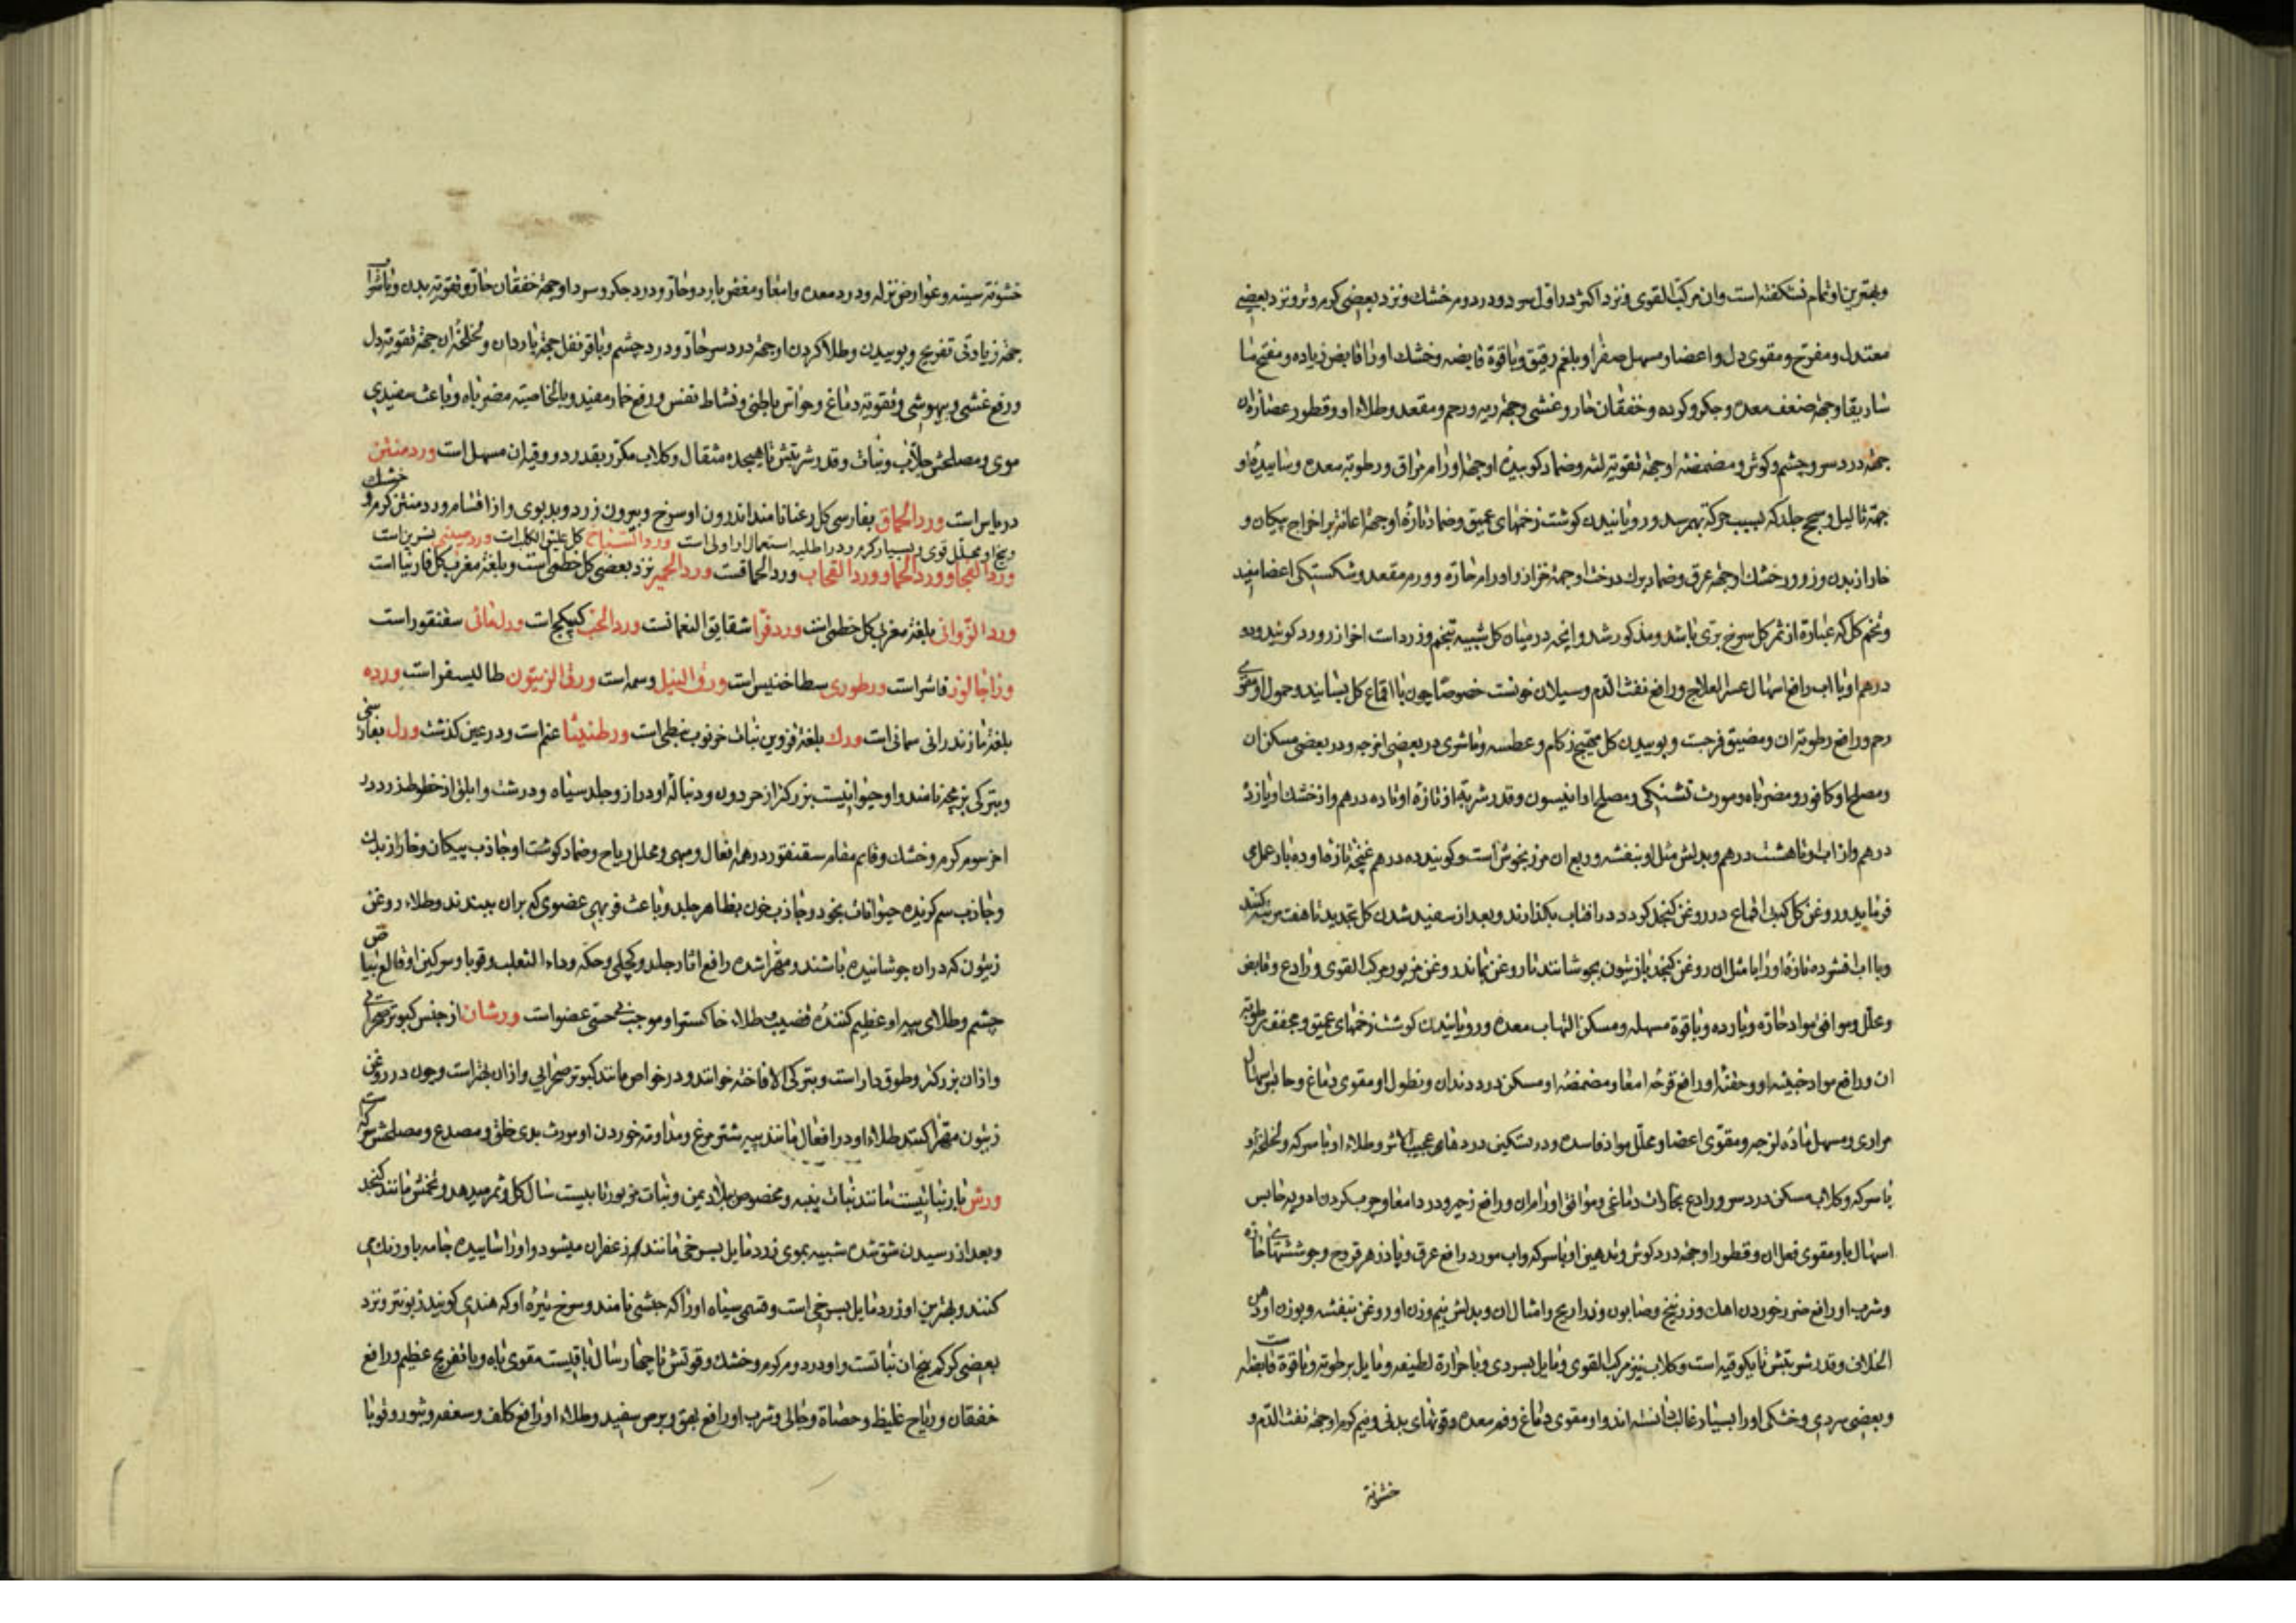 وبهترین او تمام نشکفته است وان مرکب القوی ونزد اکثر در اول سرد ودر دوم خشک ونزد بعضی کرم وتر ونزد بعضی
معتدل ومفرح ومقوی دل واعضا ومسهل صفرا وبلغم رقیق وبا قوة قابضه وخشک او را قابض زیاده ومفتح
وجهة ضعف معده وجکر وکرده وخفقان حار وغشی وجهة ریه ورحم ومقعد وطلاء او وقطور عصارۀ ان
جهة درد سر وچشم وکوش ومضمضۀ او جهة تقویة لثه وضماد کوبیدۀ او جهة اورام مراق ورطوبة معده وساییدۀ او
جهة ثالیل وسحج جلد که بسبب حرکة بهم رسد ورویانیدن کوشت زخمهای عمیق وضماد تازۀ او جهة اعانة بر اخراج پیکان و
خار از بدن وزرور خشک او جهة عرق وضماد برک درخت او جهة واورام حارة وورم مقعد وشکستکی اعضا مفید
وتخم کل که عبارة از ثمر کل سرخ بری باشد ومذکور شد وانچه در میان کل شبیه بتخم وزرد است اخوان ورد کویند ودو
درهم او با اب رافع اسهال عسر العلاج ورافع نفث الدم وسیلان خونست خصوصا چون با اقماع کل بسایند وحمول او مقوی
رحم ورافع رطوبة ان ومضیق فرجست وبوییدن کل مهیج زکام وعطسه وناشری در بعضی امزجه ودر بعضی مسکن ان
ومصلح او کافور ومضر باه ومورث تشنکی ومصلح او انیسون وقدر شربة از تازۀ او تا ده درهم واز خشک او پانزده
درهم واز اب او تا هشت درهم وبدلش مثل او بنفشه وربع ان مرزنجوش است وکویند ده درهم غنچۀ تازۀ او ده بار عمل می
فرماید وروغن کل کردن اقماع در روغن کنجد کرده در افتاب بکذارند وبعد از سفید شدن کل تجدید تا هفت مرتبه کنند
وبا اب فشرده تازۀ او را با مثل ان روغن کنجد یا زیتون بجوشانند تا روغن بماند وروغن مزبور مرکب القوی ورادع وقابض
ومحلل وموافق مواد حارة وبارده وبا قوة مسهله ومسکن التهاب معده ورویانیدن کوشت زخمهای عمیق ومجفف رطوبة
ان ورافع مواد خبیثه او وحقنۀ او رافع قرحه امعا ومضمضۀ او مسکن درد دندان ونطول او مقوی دماغ وحابس اسهال
مراری ومسهل مادۀ لزجه ومقوی اعضا ومحلل مواد فاسده ودر تسکین دردهای عجیب الاثر وطلاء او با سرکه ولخلخۀ او
با سرکه وکلاب مسکن درد سر ورادع بخارات دماغی وموافق اورام ان ورافع زحیر ودرد امعا وچرب کردن ادویه حابس
اسهال باو مقوی فعل ان وقطور او جهة درد کوش وتدهین او با سرکه واب مورد رافع عرق وپادزهر قروح وجوششهای حارة
وشرب او رافع ضرر خوردن اهک وزرنیخ وصابون وذراریح وامثال ان وبدلش نیم وزن او روغن بنفشه وبوزن او دهن
الخلاف وقدر شربتش تا یکوقیه است وکلاب نیز مرکب القوی ومایل بسردی وبا حرارة لطیفه ومایل برطوبة وبا قوة قابضه است
وبعضی سردی وخشکی او را بسیار غالب دانسته اند واو مقوی دماغ وفم معده وقوتهای بدنی ونیم کرم او جهة نفث الدم و
خشونة
خشونة سینه وعوارض نزله ودرد معده وامعا ومغص بارد وحار ودرد جکر وسرد او جهة خفقان حار وتقویة بدن وبا شراب
جهة زیادتی تفریح وبوییدن وطلا کردن او جهة درد سر حار ودرد چشم وبا قرنفل جهة باردان ولخلخۀ ان جهة تقویة دل
ورفع غشی وبیهوشی وتقویة دماغ وحواس باطنی ونشاط نفس ورفع خمار مفید وبالخاصیة مضر باه وباعث سفیدی
موی ومصلحش جلاب ونبات وقدر شربتش تا هیجده مثقال وکلاب مکرر بقدر دو وقیه ان مسهل است ورد منتن
دریاس است ورد الحماق بفارسی کل رعنا نامند اندرون او سرخ وبیرون زرد وبدبوی واز اقسام ورد منتن کرم وخشک
وبیخ او محلل قوی وبسیار کرم ودر اطلیه استعمال او اولی است ورد السیاج کل علیق الکلب است ورد صینی نسرین است
ورد الفجا وورد الحما وورد القحاب ورد الحماقست ورد الحمیر نزد بعضی کل خطمی است وبلغة مغرب کل فاوانیا است
ورد الزوانی بلغة مغرب کل خطمی است ورد فرا شقایق النعمانست ورد الحب کبیکج است ورل مائی سقنقور است
فاشرا است ورطوری سطاخنیس است ورق النیل وسمه است ورق الزیتون طالیسفر است ورده
بلغة مازندرانی سمانی است ورک بلغة قزوین نبات خرنوب نبطی است ورطنیثا عنم است ودر عین کذشت ورل بفارسی
وبترکی بزمجه نامند واو حیوانیست بزرکتر از حردون ودنبالۀ او دراز وجلد سیاه ودرشت وابلق از خطوط زرد در
اخر سوم کرم وخشک وقایم مقام سقنقور در همه افعال ومبهی ومحلل ریاح وضماد کوشت او جاذب پیکان وخار از بدن
وجاذب سم کزنده حیوانات بخود وجاذب خون بظاهر جلد وباعث فربهی عضوی که بران ببندند وطلاء روغن
زیتون که دران جوشانیده باشند ومهرا شده رافع اثار جلد وکچلی وحکه وداء الثعلب وقوبا وسرکین او قالع بیاض
چشم وطلای پیه او عظیم کنندۀ قضیب وطلاء خاکستر او موجب بیحسی عضو است ورشان از جنس کبوتر صحرایی
وازان بزرکتر وطوقدار است وبترکی الا فاخته خوانند ودر خواص مانند کبوتر صحرایی وازان بهتر است وچون در روغن
زیتون مهرا کنند طلاء او در افعال مانند پیه شترمرغ ومداومة خوردن او مورث بدی خلق ومصدع ومصلحش سرکه است
ورش نام نباتیست مانند نبات پنبه ومخصوص بلاد یمن ونبات مزبور تا بیست سال کل وثمر میدهد وتخمش مانند کنجد
وبعد از رسیدن شق شده شبیه بموی زرد مایل بسرخی مانند زعفران میشود واو را ساییده جامه باو رنک می
کنند وبهترین او زرد مایل بسرخی است وقسمی سیاه او را که حبشی نامند وسرخ تیرۀ او که هندی کویند زبونتر ونزد
بعضی کرکم بیخ ان نباتست واو در دوم کرم وخشک وقوتش تا چهار سال باقیست مقوی باه وبا تفریح عظیم ورافع
خفقان وریاح غلیظ وحصاة وجالی وشرب او رافع بهق وبرص سفید وطلاء او رافع کلف وسعفه وبثور وقوبا